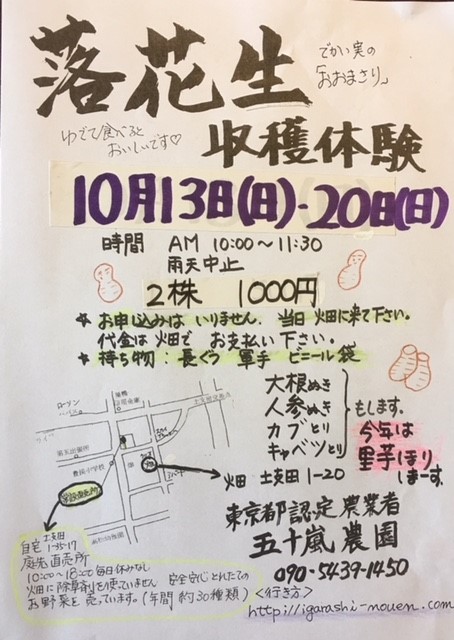 落花生
でかい実の
「おおまさり」
ゆでて食べると
おいしいです♡
収穫体験
10月13日(日)-20日(日)
時間 AM 10:00~11:30
雨天中止
2株 1000円
★ お申し込みは いりません. 当日 畑に来て下さい。
代金は畑で お支払い下さい。
★ 持ち物: 長ぐつ 軍手 ビニール袋
大根ぬき
人参ぬき
カブとり
キャベツとり
もします。
今年は
里芋ほり
しまーす。
ローソン
巣鴨
信用金庫
土支田交番
第五出張所
豊渓小学校
畑
畑 土支田 1-20
自宅 土支田
1-35-17
庭先直売所
10:00~18:00 毎日休みなし
畑に除草剤を使っていません 安全安心とれたての
お野菜を売っています。(年間 約30種類)
東京都認定農業者
五十嵐農園
090-5439-1450
<行き方>
http://igarashi-nouen.com/